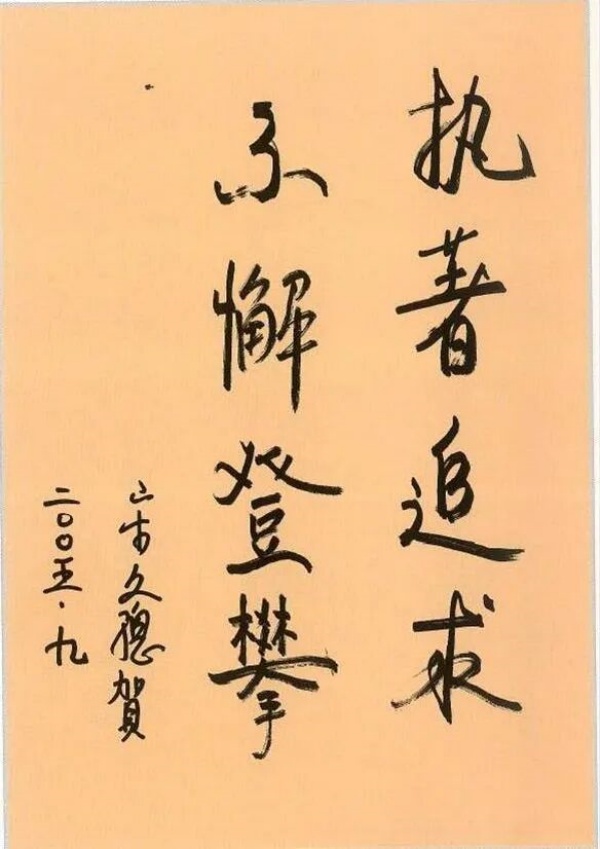 执著追求
不懈登攀
久聪贺
二〇〇五·九